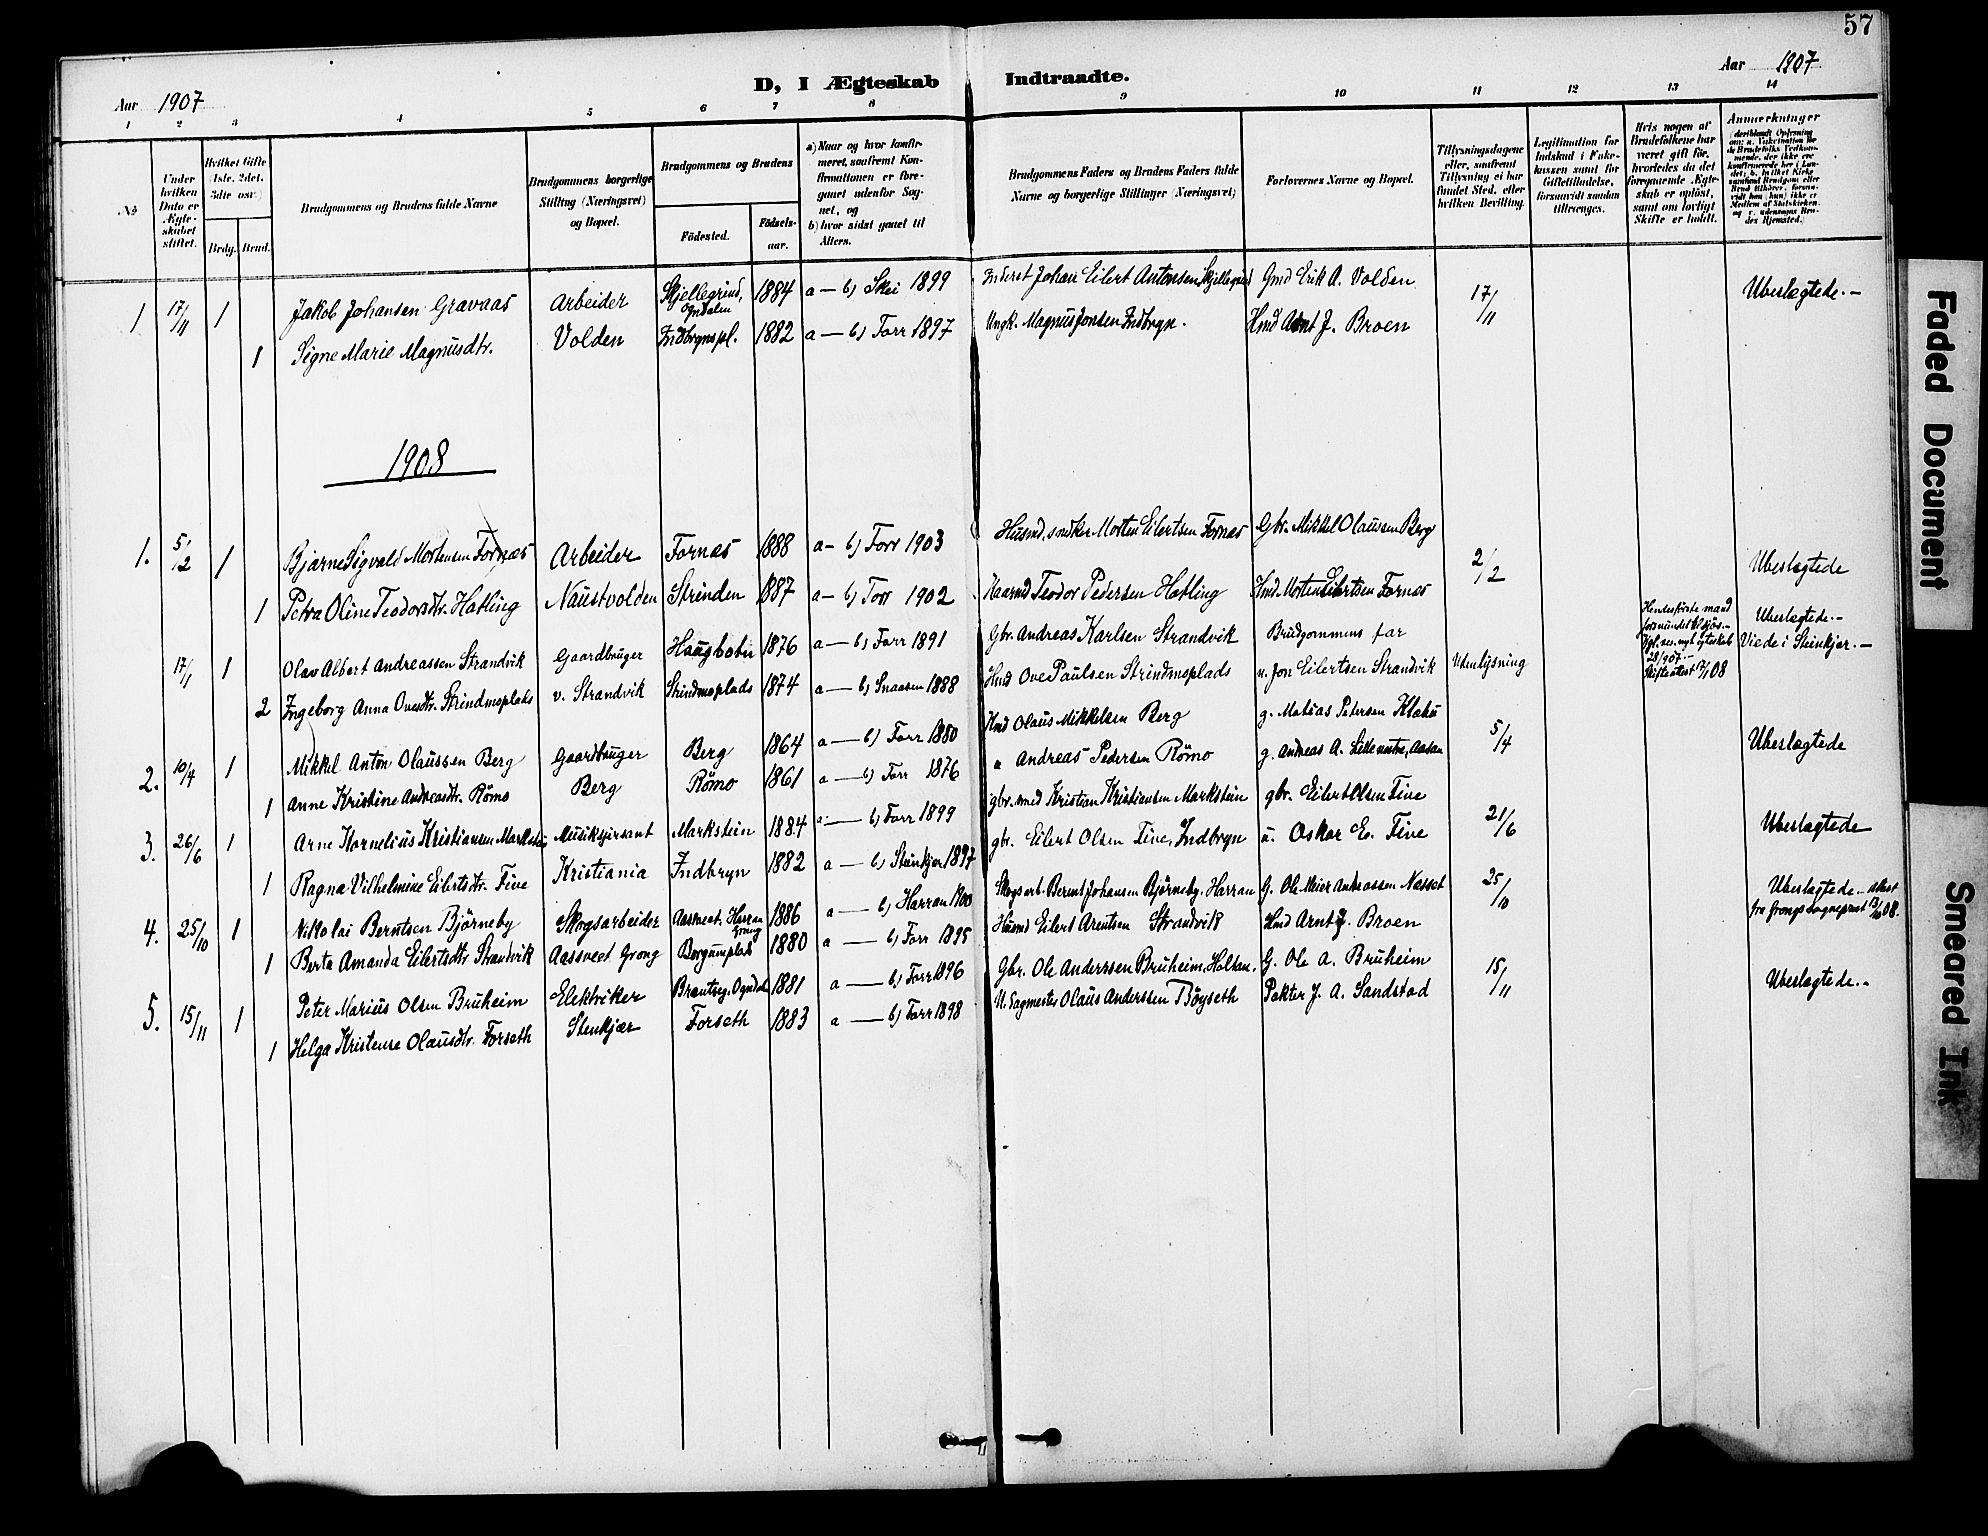 57
D, I Ægteskab Indtraadte.
Aar 1907
Aar 1907
1 2 3 4 5 6 7 8 9 10 11 12 13 14
No
Under hvilken Dato er Ægteskabet stiftet.
Hvilket Gifte (1ste. 2det. 3dte osv.)
Brdg. Brud.
Brudgommens og Brudens fulde Navne
Brudgommens borgerlige Stilling (Næringsvei) og Bopæl.
Brudgommens og Brudens
Födested.
Födselsaar.
a) Naar og hvor konfirmeret, saafremt Konfirmationen er foregaaet udenfor Sognet, og
b) hvor sidst gaaet til Alters.
Brudgommens Faders og Brudens Faders fulde Navne og borgerlige Stillinger (Næringsvei)
Forlovernes Navne og Bopæl.
Tillysningsdagene eller, saafremt Tillysning ei har fundet Sted, efter hvilken Bevilling.
Legitimation for Indskud i Enkekassen samt for Giftetilladelse, forsaavidt saadan tiltrænges.
Hvis nogen af Brudefolkene har været gift för, hvorledes da det foregaaende Ægteskab er oplöst, samt om lovligt Skifte er holdt.
Anmærkninger
1 17/11 1 Jakob Johansen Gravaas Arbeider Skjellegrind, Ogndalen 1884 a — b) Skei 1899 Inderst Johan Eilert Antonsen Skjellegrind Gmd Erik A. Volden 17/11 Ubeslægtede.-
1 Signe Marie Magnusdtr. Volden Indbrynspl. 1882 a — b) Forr 1897 Ungk. Magnus Jonsen Indbryn. Hmd Arnt J. Broen
1908
1. 5/2 1 Bjarne Sigvald Mortensen Fornæs Arbeider Fornæs 1888 a- b) Forr 1903 Husmd. snekker Morten Eilertsen Fornæs Gbr. Mikkel Olaussen Berg 2/2 Ubeslægtede
1 Petra Oline Teodorsdtr. Hatling Naustvolden Strinden 1887 a- b) Forr 1902 Kaarmd Teodor Pedersen Hatling Hmd. Morten Eilertsen Fornæs
17/1 1 Olav Albert Andreassen Strandvik Gaardbruger 1876 a — b) Forr 1891 Gbr. Andreas Karlsen Strandvik Brudgommens far Utenlysning Hendes første mand Ubeslægtede.-
2 Ingeborg Anna Ovesdtr. Strindmoplads v. Strandvik Strindmoplads 1874 a — b) Snaasen 1888 Hmd Ove Paulsen Strindmoplads u. Jon Eilertsen Strandvik Skifteattest Viede i Steinkjær.-
2. 10/4 1 Mikkel Anton Olaussen Berg Gaardbruger Berg 1864 a — b) Forr 1880 Hmd Olaus Mikkelsen Berg g. Matias Petersen Klæku 5/4 Ubeslægtede
1 Anne Kristine Andreasdtr. Römo Berg Römo 1861 a — b) Forr 1876 " Andreas Pedersen Römo g. Andreas A.
3. 26/6 1 Arne Kornelius Kristiansen Markstein Musiksjersant Markstein 1884 a — b) Forr 1899 Kristian Kristiansen Markstein gbr. Eilert Olsen Five 21/6 Ubeslægtede
1 Ragna Vilhelmine Eilertsdtr. Five Kristiania Indbryn 1882 a — b) Steinkjer 1897 gbr. Eilert Olsen Five, Indbryn u. Oskar E. Five
4. 25/10 1 Nikolai Berntsen Bjørneby Skogsarbeider Harran Grong 1886 a — b) Harran 1900 Skogsarb. Bernt Johansen Bjørneby, Harran G. Ole Meier Andreassen Nesset 25/10 Ubeslægtede - Attest fra Grongs Sogneprest
1 Berta Amanda Eilertsdtr Strandvik Aassveet Grong Borgumplads 1880 a — b) Forr 1895 Husmd Eilert Arentsen Strandvik Hmd Arnt J. Broen
5. 15/11 1 Peter Marius Olsen Bruheim Elektriker Ogndal 1881 a — b) Forr 1896 Gbr. Ole Anderssen Bruheim, Holtan. G. Ole A. Bruheim 15/11 Ubeslægtede.-
1 Helga Kristense Olausdtr. Forseth Stenkjær Forseth 1883 a — b) Forr 1898 Olaus Anderssen Böyseth Pakter J. A. Sandstad
Faded Document
Smeared Ink